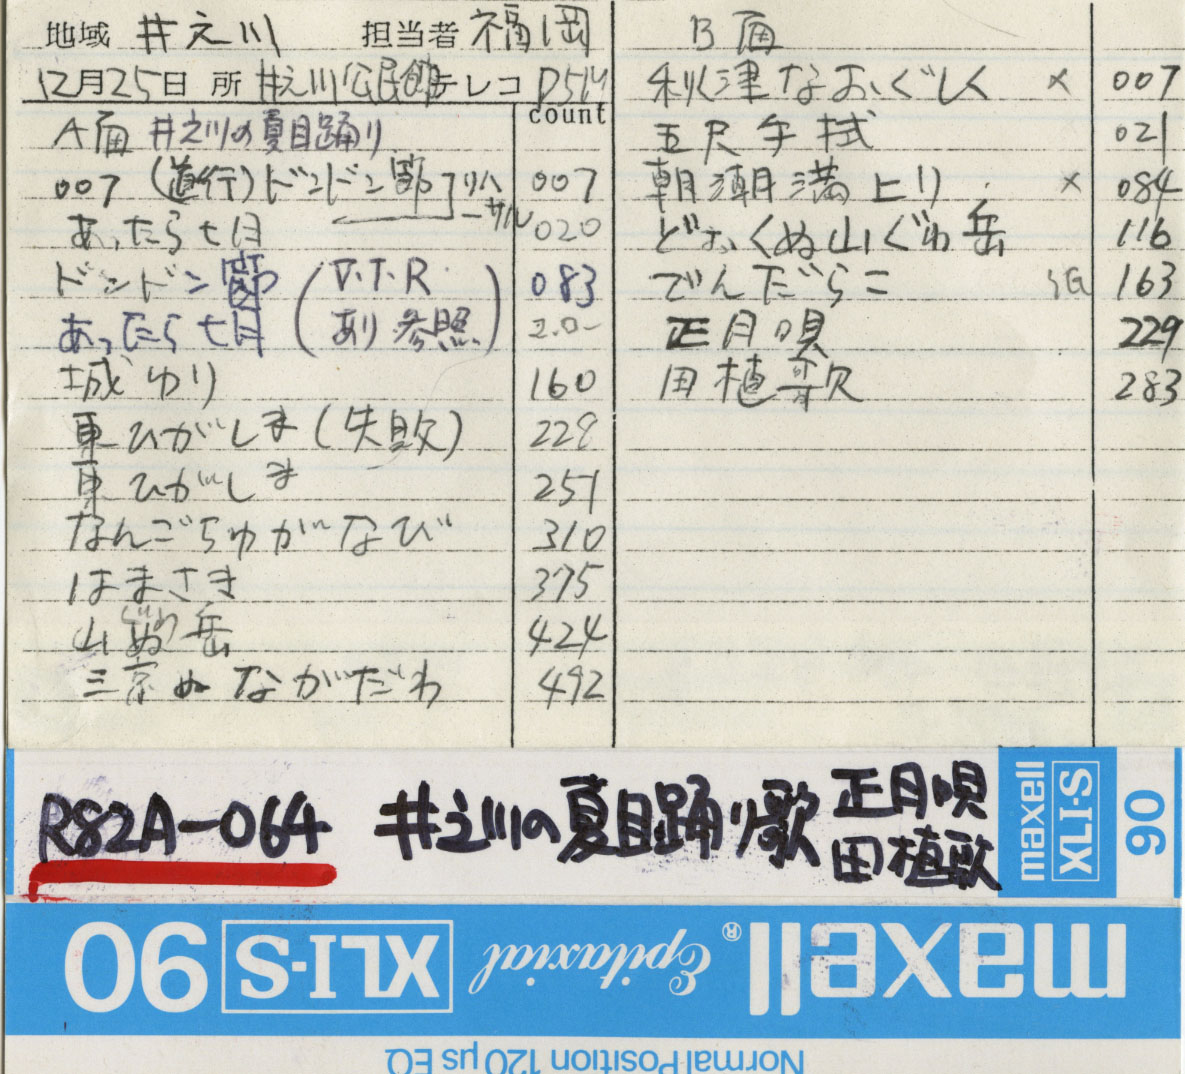 地域 井之川 担当者 福岡
12月25日 所 井之川公民館 テレコ D5M
count
A面 井之川の夏目踊り
007 (道行)ドンドン節 リハーサル 007
あったら七月 020
ドンドン節 (V.T.R 083
あったら七月 あり参照) 2.0-
城ゆり 160
東ひがしま(失敗) 228
東ひがしま 251
なんごちゅがなび 310
はまさき 375
山ぬ岳 424
ぐゎ
三京ぬながだわ 492
B面
秋津なおぐしく × 007
五尺手拭 021
朝潮満上り × 084
どおくぬ山ぐゎ岳 116
でんだらこ 163
正月唄 229
田植歌 283
R82A-064 井之川の夏目踊り歌 正月唄
田植歌
maxell XLI-S 90
maxell® Epitaxial XLI-S 90
Normal Position 120 μs EQ